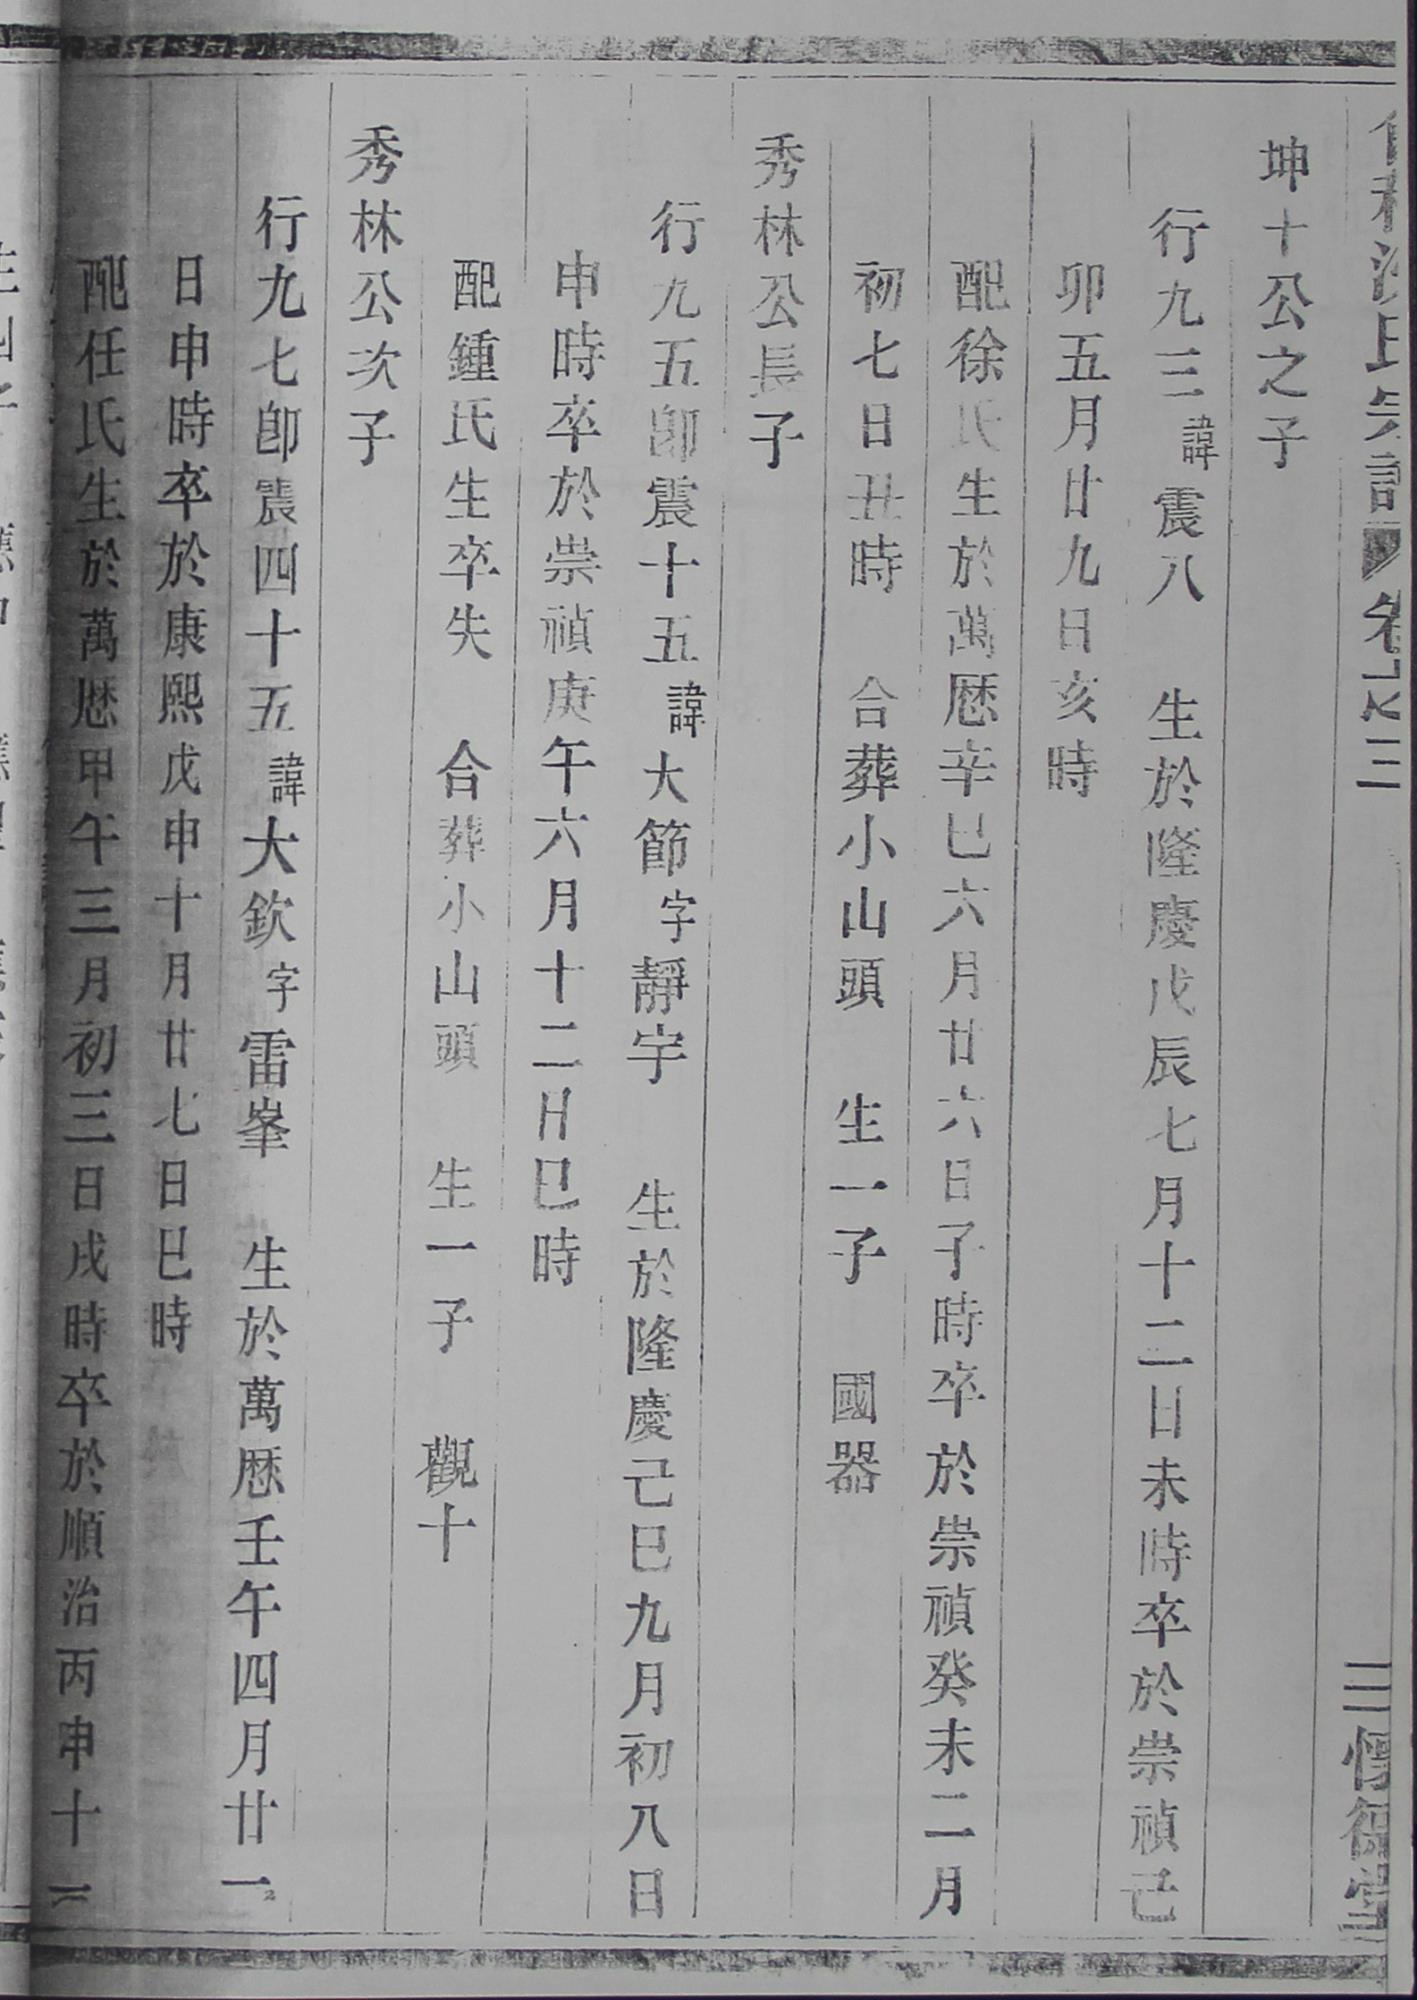 氏宗譜 卷之三 三 惇德堂
坤十公之子
行九三諱震八 生於隆慶戊辰七月十二日未時卒於崇禎己
卯五月廿九日亥時
配徐氏生於萬厯辛巳六月廿六日子時卒於崇禎癸未二月
初七日丑時 合葬小山頭 生一子 國器
秀林公長子
行九五卽震十五諱大節字靜宇 生於隆慶己巳九月初八日
申時卒於崇禎庚午六月十二日巳時
配鍾氏生卒失 合葬小山頭 生一子 觀十
秀林公次子
行九七卽震四十五諱大欽字雷峯 生於萬厯壬午四月廿一
日申時卒於康熙戊申十月廿七日巳時
配任氏生於萬厯甲午三月初三日戌時卒於順治丙申十